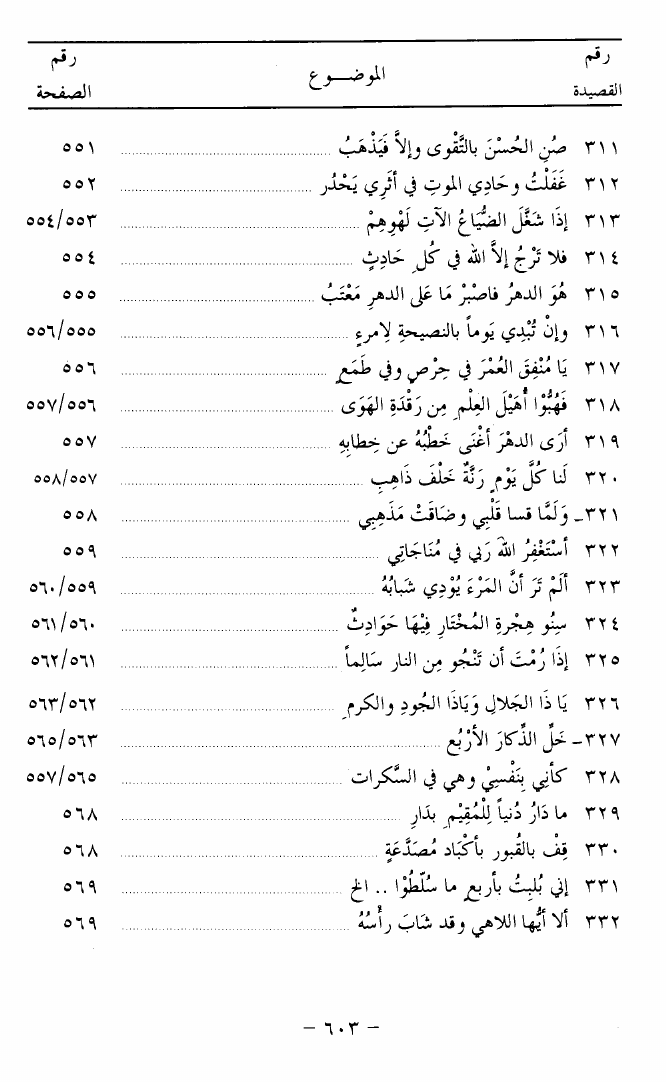 رقم القصيدة الموضـــوع رقم الصفحة
٣١١ صُنِ الحُسْنَ بالتَّقْوى وإلاَّ فَيَذْهَبُ ٥٥١
٣١٢ غَفَلْتُ وحَادِي الموتِ في أثَرِي يَحْدُر ٥٥٢
٣١٣ إذَا شَغَّلَ الضُّيَاعُ الآتِ لَهْوِهِمْ ٥٥٤/٥٥٣
٣١٤ فلا تَرْجُ إلاَّ الله في كُلِ حَادِثٍ ٥٥٤
٣١٥ هُوَ الدهرُ فاصْبْرْ مَا عَلى الدهرِ مَعْتَبُ ٥٥٥
٣١٦ وإنْ تُبْدِي يَوماً بالنصيحةِ لِامرءٍ ٥٥٦/٥٥٥
٣١٧ يَا مُنْفِقَ العُمْرَ في حِرْصٍ وفي طَمَعٍ ٥٥٦
٣١٨ فَهُبُّوْا أُهَيْلَ العِلْمِ مِن رَقْدَةِ الهَوَى ٥٥٧/٥٥٦
٣١٩ أرَى الدهْرَ أغْنَى خَطْبُهُ عن خِطابِهِ ٥٥٧
٣٢٠ لَنا كُلَّ يَوْمٍ رَنَّةٌ خَلْفَ ذَاهِبِ ٥٥٨/٥٥٧
٣٢١ـ وَلَمَّا قسا قَلْبِي وضَاقَتْ مَذَهِبِي ٥٥٨
٣٢٢ أسْتَغْفِرُ اللهَ رَبي في مُنَاجَاتِي ٥٥٩
٣٢٣ ألَمْ تَرَ أنَّ المَرْءَ يُوْدِي شَبابُهُ ٥٦٠/٥٥٩
٣٢٤ سِنُو هِجْرةِ المُخْتَارِ فِيْهَا حَوَادِثٌ ٥٦١/٥٦٠
٣٢٥ إذَا رُمْتَ أن تَنْجُو مِن النار سَالِماً ٥٦٢/٥٦١
٣٢٦ يَا ذَا الجَلالِ وَيَاذَا الجُودِ والكرمِ ٥٦٣/٥٦٢
٣٢٧ـ خَلِّ الذِّكارَ الأرْبُع ٥٦٥/٥٦٣
٣٢٨ كأنِي بِنَفْسِيْ وهي في السَّكرات ٥٥٧/٥٦٥
٣٢٩ ما دَارُ دُنياً لِلْمُقِيْمِ بدَارِ ٥٦٨
٣٣٠ قِفْ بالقُبور بأكْبَاد مُصَدَّعَةٍ ٥٦٨
٣٣١ إني بُلبِتُ بأربعٍ ما سُلّطُوْا .. الخ ٥٦٩
٣٣٢ ألا أيُّها اللاهي وقد شَابَ رأْسُهُ ٥٦٩
– ٦٠٣ –